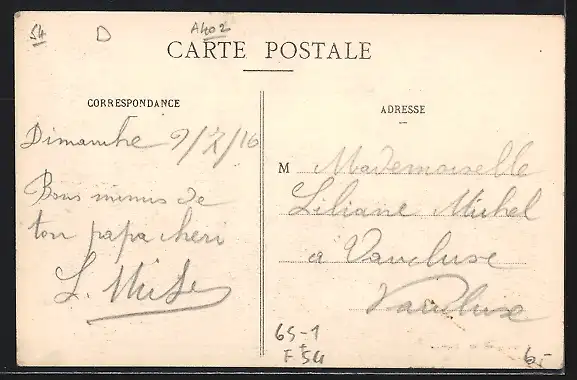 54
D
A402
CARTE POSTALE
CORRESPONDANCE
Dimanche 9/X/16
Bons mimis de
ton papa cheri
L. Michel
ADRESSE
M Mademoiselle
Liliane Michel
à Vaucluse
Vaucluse
65-1
F 54
6-